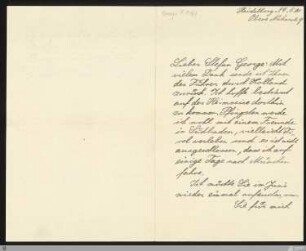 Heidelberg
Lieber Stefan George! Mit
vielen Dank sende ich Ihnen
den Führer durch Holland
zurück. Ich hoffe
auf der Heimreise dorthin
zu kommen. Pfingsten werde
ich wohl mit einem Freunde
in Südbaden, vielleicht
verleben, und es ist nicht
ausgeschlossen, dass ich auf
einige Tage nach München
fahre.
Ich möchte Sie im Juni
wieder einmal aufsuchen um
Sie für mich